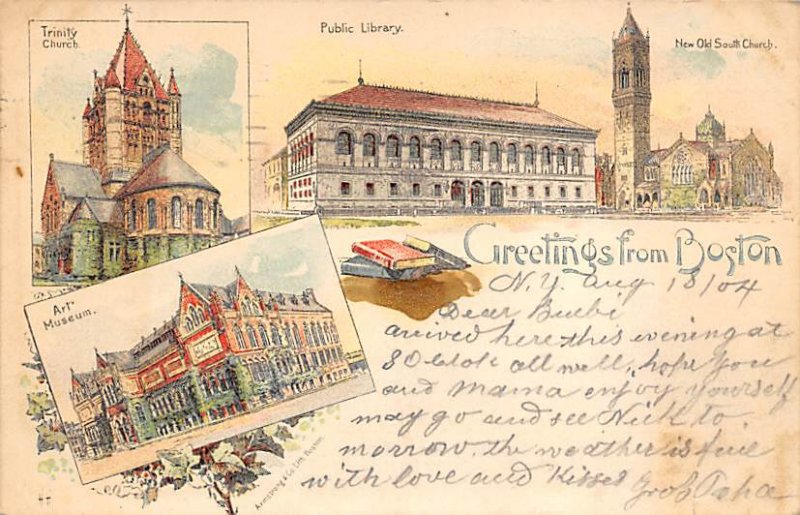 Trinity
Church.
Public Library.
New Old South Church.
Art
Museum.
Greetings from Boston
N.Y. Aug 18/04
Dear Bubi
arived here this evening at
8 Oclok all well, hope you
and Mama enjoy yourself
may go and see Nick to
morrow. the weather is fine
with love and Kisses
Gros Papa
Armstrong & Co. Lith. Boston.